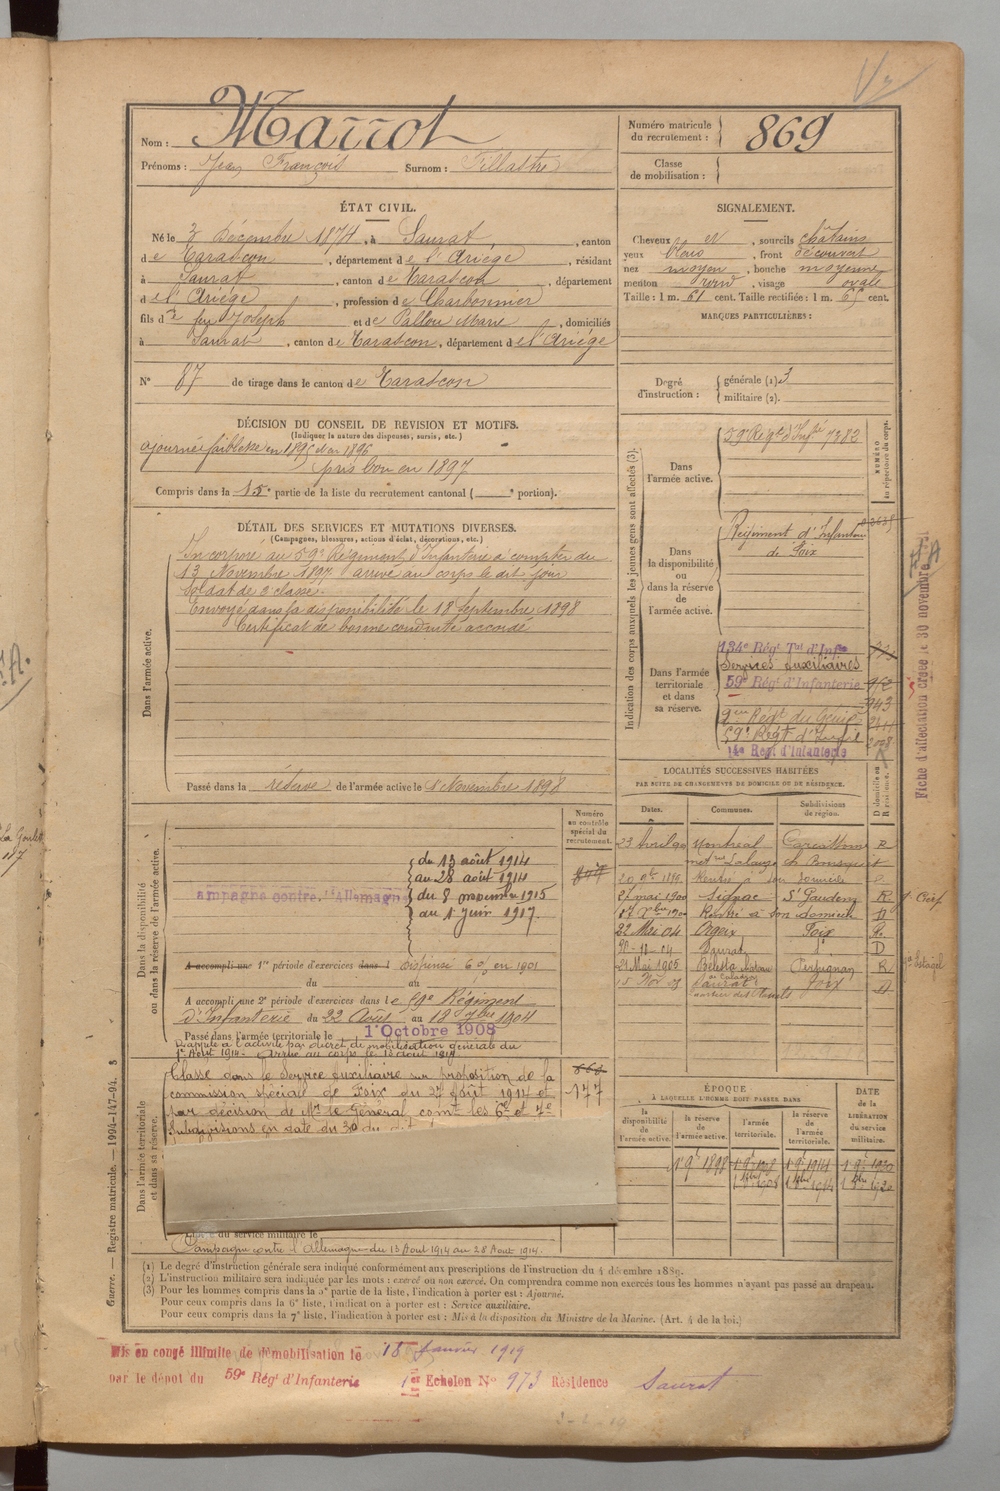 Nom : Marrot
Prénoms : Jean François Surnom : Fillastre
Numéro matricule du recrutement : 869
Classe de mobilisation :
ÉTAT CIVIL.
Né le 3 Décembre 1874, à Saurat, canton
de Tarascon, département de l'Ariège, résidant
à Saurat, canton de Tarascon, département
de l'Ariège, profession de Charbonnier
fils de feu Joseph et de Pallou Marie, domiciliés
à Saurat, canton de Tarascon, département de l'Ariège
N° 87 de tirage dans le canton de Tarascon
SIGNALEMENT.
Cheveux et, sourcils châtains
yeux bleus, front découvert
nez moyen, bouche moyenne
menton rond, visage ovale
Taille : 1 m. 61 cent. Taille rectifiée : 1 m. 65 cent.
MARQUES PARTICULIÈRES :
Degré d'instruction : générale (1) 3
militaire (2).
DÉCISION DU CONSEIL DE REVISION ET MOTIFS.
(Indiquer la nature des dispenses, sursis, etc.)
ajourné faiblesse en 1895 et en 1896
pris bon en 1897
Compris dans la 15e partie de la liste du recrutement cantonal ( e portion).
DÉTAIL DES SERVICES ET MUTATIONS DIVERSES.
(Campagnes, blessures, actions d'éclat, décorations, etc.)
Dans l'armée active.
Incorporé au 59e Régiment d'Infanterie à compter du
13 Novembre 1897 arrivé au corps le dit jour
Soldat de 2e classe.
Envoyé dans la disponibilité le 18 Septembre 1898
Certificat de bonne conduite accordé
Passé dans la réserve de l'armée active le 1er Novembre 1898
Indication des corps auxquels les jeunes gens sont affectés (3).
NUMÉRO au répertoire du corps.
Dans l'armée active.
59e Régt d'Infie 7382
Dans la disponibilité ou dans la réserve de l'armée active.
Régiment d'Infanterie
de Foix
Dans l'armée territoriale et dans sa réserve.
134e Régt Tal d'Infie
Services auxiliaires
59e Régt d'Infanterie
943
59e Régt d'Infie
14e Régt d'Infanterie
Fiche d'affectation créée le 30 novembre
LOCALITÉS SUCCESSIVES HABITÉES
PAR SUITE DE CHANGEMENTS DE DOMICILE OU DE RÉSIDENCE.
Dates. Communes. Subdivisions de région. D domicile ou R résidence.
Montreal R
Rentré à son domicile
27 mai 1900 Signac St Gaudens R
Rentré à son domicile D
22 Mai 04 Orgeix Foix R.
20-11-04 Saurat D
21 Mai 1905 Perpignan R
Saurat Foix D
Numéro au contrôle spécial du recrutement.
Dans la disponibilité ou dans la réserve de l'armée active.
ampagne contre l'Allemagne
du 13 août 1914
au 28 août 1914
du 8 novembre 1915
au 1er juin 1917.
A accompli une 1re période d'exercices dans l Dispensé en 1901
du au
A accompli une 2e période d'exercices dans le 59e Régiment
d'Infanterie du 22 Août au 18 7bre 1904
Passé dans l'armée territoriale le 1er Octobre 1908
Rappelé à l'activité par décret de mobilisation générale du
1er Août 1914. Arrivé au corps le 13 août 1914
Dans l'armée territoriale et dans sa réserve.
Classé dans le Service auxiliaire sur proposition de la
commission spéciale de Foix du 27 août 1914 et
par décision de Mr le Général comt les 6e et 7e
Subdivisions en date du 30 du dit
177
du service militaire le
Campagne contre l'Allemagne du 13 Août 1914 au 28 Août 1914.
ÉPOQUE
À LAQUELLE L'HOMME DOIT PASSER DANS
la disponibilité de l'armée active. la réserve de l'armée active. l'armée territoriale. la réserve de l'armée territoriale.
DATE de la LIBÉRATION du service militaire.
1er 9bre 1898
Guerre. — Registre matricule. — 1994-147-94.
(1) Le degré d'instruction générale sera indiqué conformément aux prescriptions de l'instruction du 4 décembre 1889.
(2) L'instruction militaire sera indiquée par les mots : exercé ou non exercé. On comprendra comme non exercés tous les hommes n'ayant pas passé au drapeau.
(3) Pour les hommes compris dans la 5e partie de la liste, l'indication à porter est : Ajourné.
Pour ceux compris dans la 6e liste, l'indication à porter est : Service auxiliaire.
Pour ceux compris dans la 7e liste, l'indication à porter est : Mis à la disposition du Ministre de la Marine. (Art. 4 de la loi.)
Mis en congé illimité de démobilisation le 18 Janvier 1919
par le dépôt du 59e Régt d'Infanterie 1er Echelon N° 973 Résidence Saurat